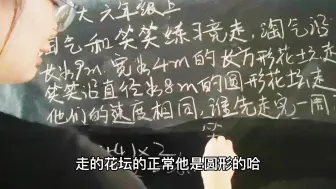 大 六年级上
淘气和笑笑练习竞走,淘气沿
长为9m,宽为4m的长方形花坛走
笑笑沿直径为8m的圆形花坛走
他们的速度相同,谁先走完一周
走的花坛的正常他是圆形的哈